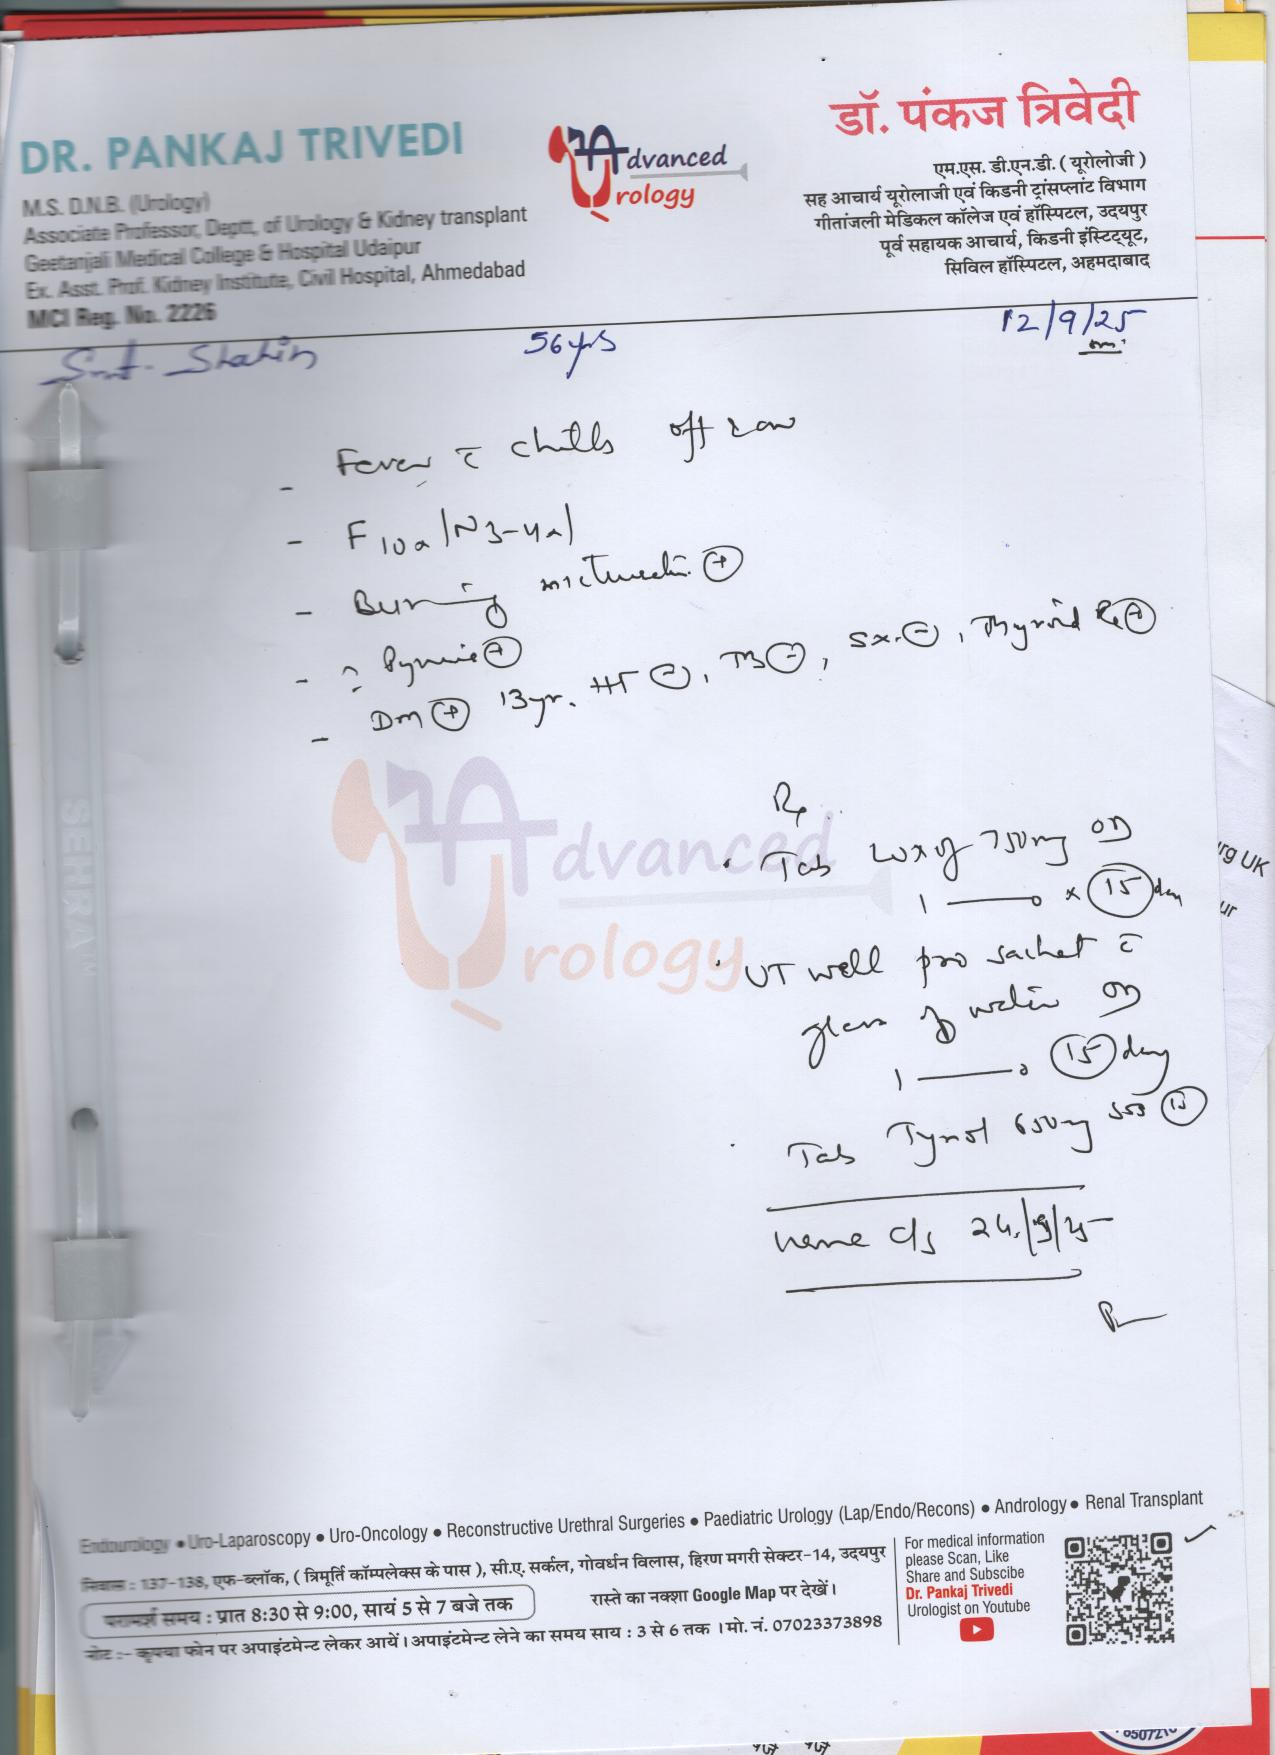 DR. PANKAJ TRIVEDI
M.S. D.N.B. (Urology)
Associate Professor, Deptt, of Urology & Kidney transplant
Geetanjali Medical College & Hospital Udaipur
Ex. Asst. Prof. Kidney Institute, Civil Hospital, Ahmedabad
MCI Reg. No. 2226
Advanced
Urology
डॉ. पंकज त्रिवेदी
एम.एस. डी.एन.डी. ( यूरोलोजी )
सह आचार्य यूरोलाजी एवं किडनी ट्रांसप्लांट विभाग
गीतांजली मेडिकल कॉलेज एवं हॉस्पिटल, उदयपुर
पूर्व सहायक आचार्य, किडनी इंस्टिट्यूट,
सिविल हॉस्पिटल, अहमदाबाद
Smt. Shahin 56 yrs 12/9/25
- Fever c̄ chills off
- F 10x/N 3-4x/
- Burning micturition (+)
- ? Pyuria (+)
- DM (+) 13 yr. HT (-), TB (-), Sx. (-), Thyroid Rx (+)
Rx
Advanced
Urology
Tab 750mg OD
1 —— x 15 day
UT well pro sachet c̄
glass of water OD
1 —— 15 day
Tab 650mg SOS 15
c/s 24/9/25
SEHRA™
rg UK
ur
Endourology • Uro-Laparoscopy • Uro-Oncology • Reconstructive Urethral Surgeries • Paediatric Urology (Lap/Endo/Recons) • Andrology • Renal Transplant
निवास : 137-138, एफ-ब्लॉक, ( त्रिमूर्ति कॉम्पलेक्स के पास ), सी.ए. सर्कल, गोवर्धन विलास, हिरण मगरी सेक्टर-14, उदयपुर
परामर्श समय : प्रात 8:30 से 9:00, सायं 5 से 7 बजे तक
रास्ते का नक्शा Google Map पर देखें।
नोट :- कृपया फोन पर अपाइंटमेन्ट लेकर आयें। अपाइंटमेन्ट लेने का समय साय : 3 से 6 तक । मो. नं. 07023373898
For medical information
please Scan, Like
Share and Subscibe
Dr. Pankaj Trivedi
Urologist on Youtube